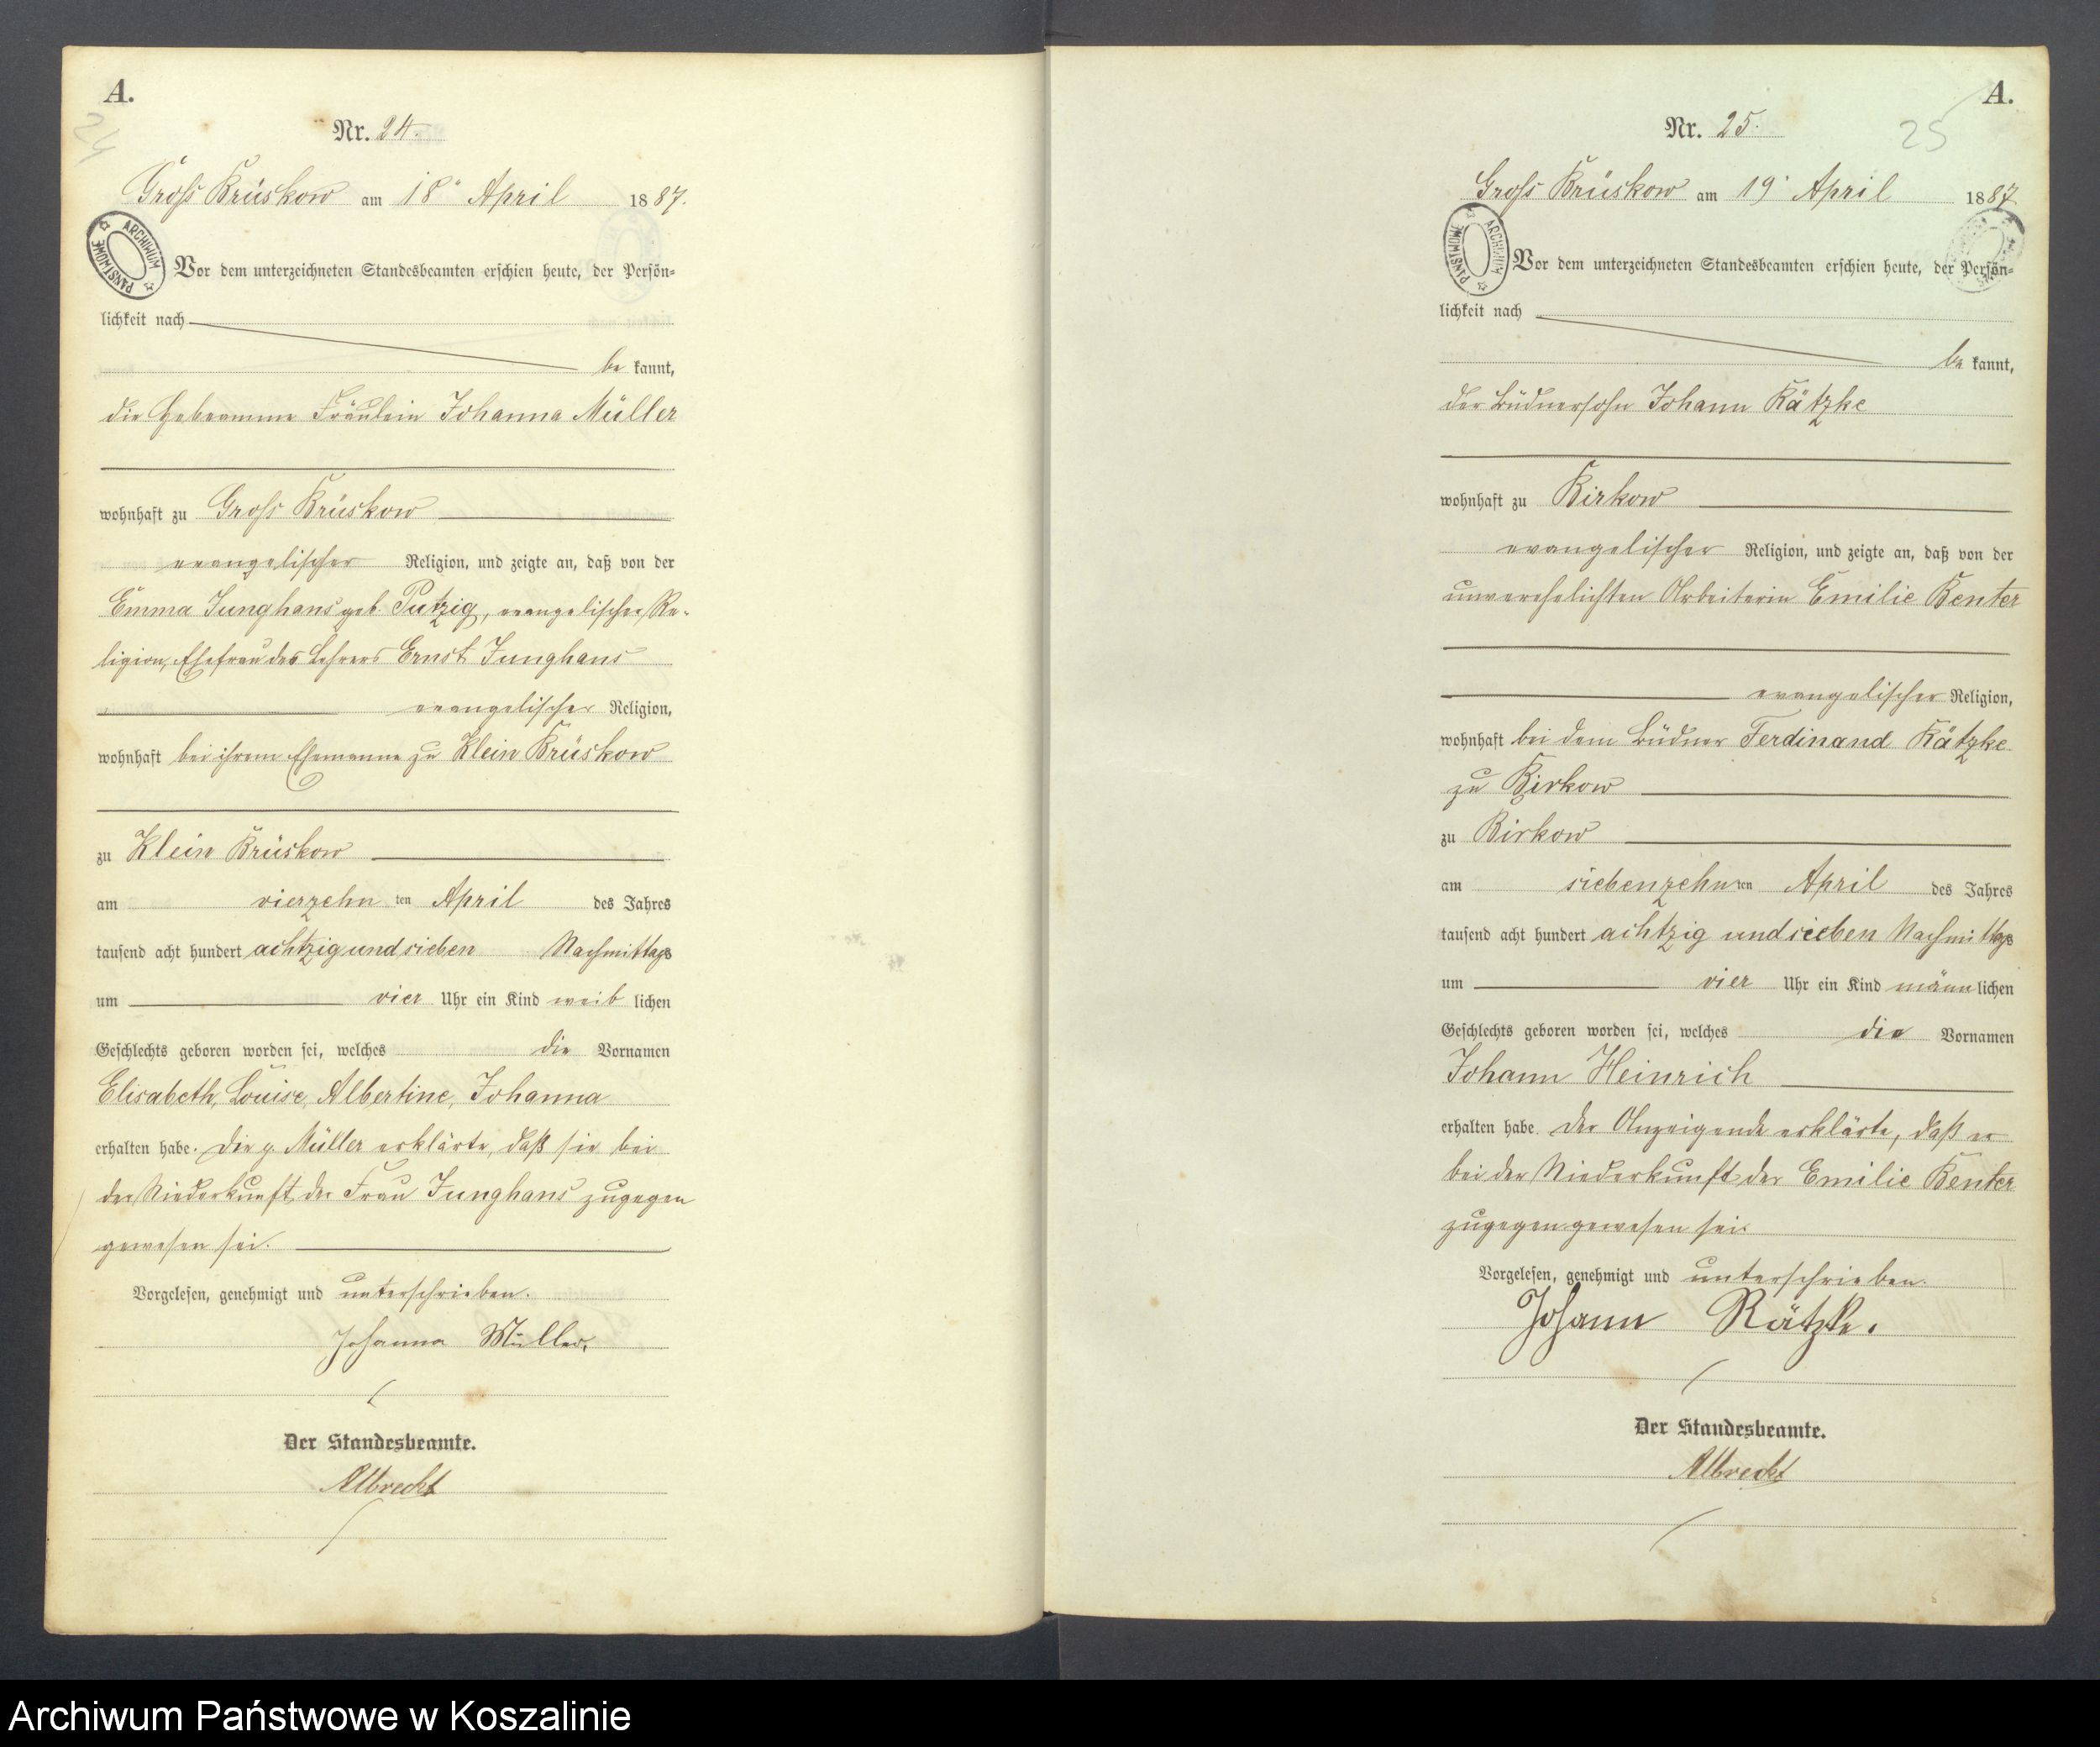 A.
24
Nr. 24.
Gross Brüskow am 18" April 1887.
ARCHIWUM PAŃSTWOWE
Vor dem unterzeichneten Standesbeamten erschien heute, der Persön=
lichkeit nach
be kannt,
die Hebeamme Fräulein Johanna Müller
wohnhaft zu Gross Brüskow
evangelischer Religion, und zeigte an, daß von der
Emma Junghans geb. Putzig, evangelischer Re-
ligion, Ehefrau des Lehrers Ernst Junghans
evangelischer Religion,
wohnhaft bei ihrem Ehemanne zu Klein Brüskow
zu Klein Brüskow
am vierzehn ten April des Jahres
tausend acht hundert achtzig und sieben Nachmittags
um vier Uhr ein Kind weib lichen
Geschlechts geboren worden sei, welches die Vornamen
Elisabeth, Louise, Albertine, Johanna
erhalten habe. Die p. Müller erklärte, daß sie bei
der Niederkunft der Frau Junghans zugegen
gewesen sei.
Vorgelesen, genehmigt und unterschrieben.
Johanna Müller.
Der Standesbeamte.
Albrecht
A.
25
Nr. 25.
Gross Brüskow am 19' April 1887
ARCHIWUM PAŃSTWOWE
Vor dem unterzeichneten Standesbeamten erschien heute, der Persön=
lichkeit nach
be kannt,
der Büdnersohn Johann Rätzke
wohnhaft zu Birkow
evangelischer Religion, und zeigte an, daß von der
unverehelichten Arbeiterin Emilie Benter
evangelischer Religion,
wohnhaft bei dem Büdner Ferdinand Rätzke
zu Birkow
zu Birkow
am siebenzehn ten April des Jahres
tausend acht hundert achtzig und sieben Nachmittags
um vier Uhr ein Kind männ lichen
Geschlechts geboren worden sei, welches die Vornamen
Johann Heinrich
erhalten habe. Der Anzeigende erklärte, daß er
bei der Niederkunft der Emilie Benter
zugegen gewesen sei.
Vorgelesen, genehmigt und unterschrieben.
Johann Rätzke.
Der Standesbeamte.
Albrecht
Archiwum Państwowe w Koszalinie